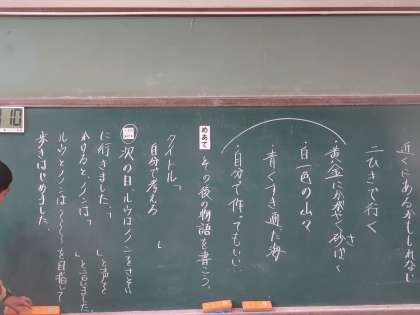 近くにあるかもしれない
二ひきで行く
・黄金にかがやくさばく
・白一色の山々
・青くすき通た海
・自分で作ってもいい。
めあて
その後の物語を書こう。
タイトル「
自分で考える
」
次の日、ルウはノンをさそい
に行きました。「 」と声を
かけると、ノンは「
」と言いました。
ルウとノンは〜〜〜を目指して
歩きはじめました。
10